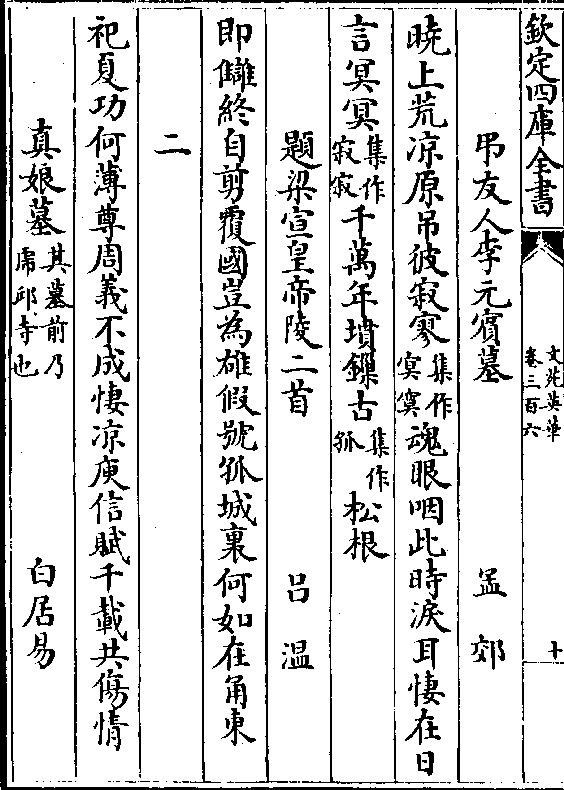 欽定四庫全書
文苑英華
卷三百六
十
弔友人李元賔墓 孟郊
曉上荒凉原吊彼寂寥集作寞寞魂眼咽此時淚耳悽在日
言冥冥集作寂寂千萬年墳鏁古集作孤松根
題梁宣皇帝陵二首 呂溫
即讎終自剪覆國豈為雄假號孤城裏何如在甬東
二
祀夏功何薄尊周義不成悽凉庾信賦千載共傷情
真娘墓其墓前乃虎邱寺也 白居易